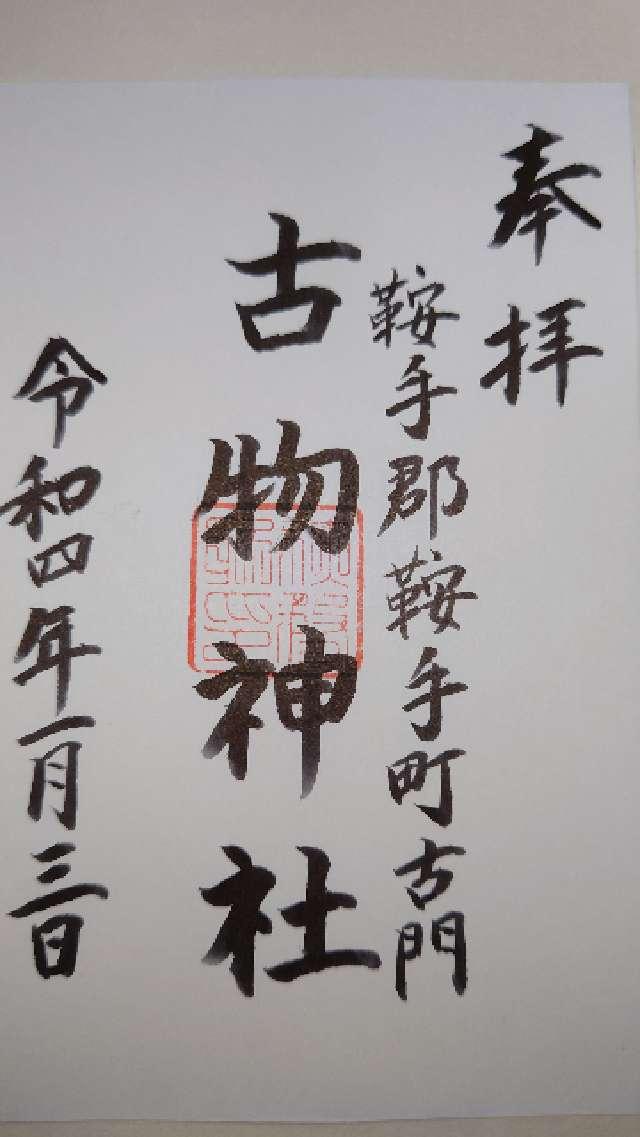 奉拝
鞍手郡鞍手町古門
古物神社
令和四年一月三日